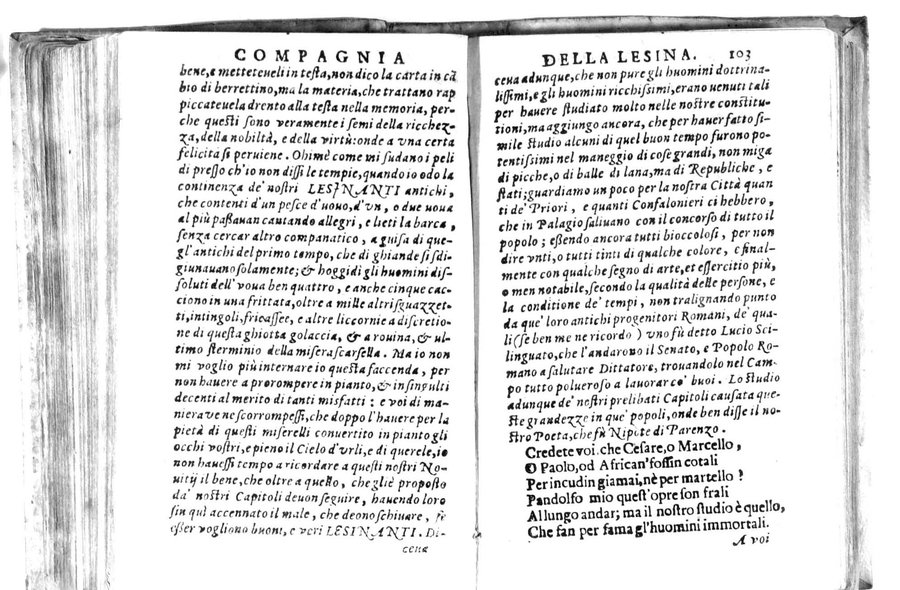 COMPAGNIA
bene, e metteteueli in testa, non dico la carta in cã
bio di berrettino, ma la materia, che trattano rap
piccateuela drento alla testa nella memoria, per-
che questi sono veramente i semi della ricchez-
za, della nobiltà, e della virtù: onde a una certa
felicita si peruiene. Ohimè come mi sudano i peli
di presso ch'io non dissi le tempie, quando io odo la
continenza de' nostri LESINANTI antichi,
che contenti d'un pesce d'uouo, d'vn, o due uoua
al più passauan cantando allegri, e lieti la barca,
senza cercar altro companatico, a guisa di que-
gl'antichi del primo tempo, che di ghiande si sdi-
giunauano solamente; & hoggidi gli huomini dis-
soluti dell'uoua ben quattro, e anche cinque cac-
ciono in una frittata, oltre a mille altri sguazzet-
ti, intingoli, fricassee, e altre liccornie a discretio-
ne di questa ghiotta golaccia, & a rouina, & ul-
timo sterminio della misera scarsella. Ma io non
mi voglio più internare io questa faccenda, per
non hauere a prorompere in pianto, & in singulti
decenti al merito di tanti misfatti: e voi di ma-
niera ve ne scorrompessi, che doppo l'hauere per la
pietà di questi miserelli conuertito in pianto gli
occhi vostri, e pieno il Cielo d'vrli, e di querele, io
non hauessi tempo a ricordare a questi nostri No-
uitij il bene, che oltre a quello, che gliè proposto
da' nostri Capitoli deuon seguire, hauendo loro
sin quì accennato il male, che deono schiuare, se
esser vogliono buoni, e veri LESINANTI. Di-
cena
DELLA LESINA. 103
ceua adunque, che non pure gli huomini dottrina-
lissimi, e gli huomini ricchissimi, erano uenuti tali
per hauere studiato molto nelle nostre constitu-
tioni, ma aggiungo ancora, che per hauer fatto si-
mile studio alcuni di quel buon tempo furono po-
tentissimi nel maneggio di cose grandi, non miga
di picche, o di balle di lana, ma di Republiche, e
stati; guardiamo un poco per la nostra Città quan
ti de' Priori, e quanti Confalonieri ci hebbero,
che in Palagio saliuano con il concorso di tutto il
popolo; essendo ancora tutti bioccolosi, per non
dire vnti, o tutti tinti di qualche colore, e final-
mente con qualche segno di arte, et essercitio più,
o men notabile, secondo la qualità delle persone, e
la conditione de' tempi, non tralignando punto
da que' loro antichi progenitori Romani, de' qua-
li (se ben me ne ricordo) vno fù detto Lucio Sci-
linguato, che l'andarono il Senato, e Popolo Ro-
mano a salutare Dittatore, trouandolo nel Cam-
po tutto polueroso a lauorar co' buoi. Lo studio
adunque de' nostri prelibati Capitoli causata que-
ste grandezze in que' popoli, onde ben disse il no-
stro Poeta, che fù Nipote di Parenzo.
Credete voi, che Cesare, o Marcello,
O Paolo, od African' fossin cotali
Per incudin giamai, nè per martello?
Pandolfo mio quest'opre son frali
Allungo andar; ma il nostro studio è quello,
Che fan per fama gl'huomini immortali.
A voi